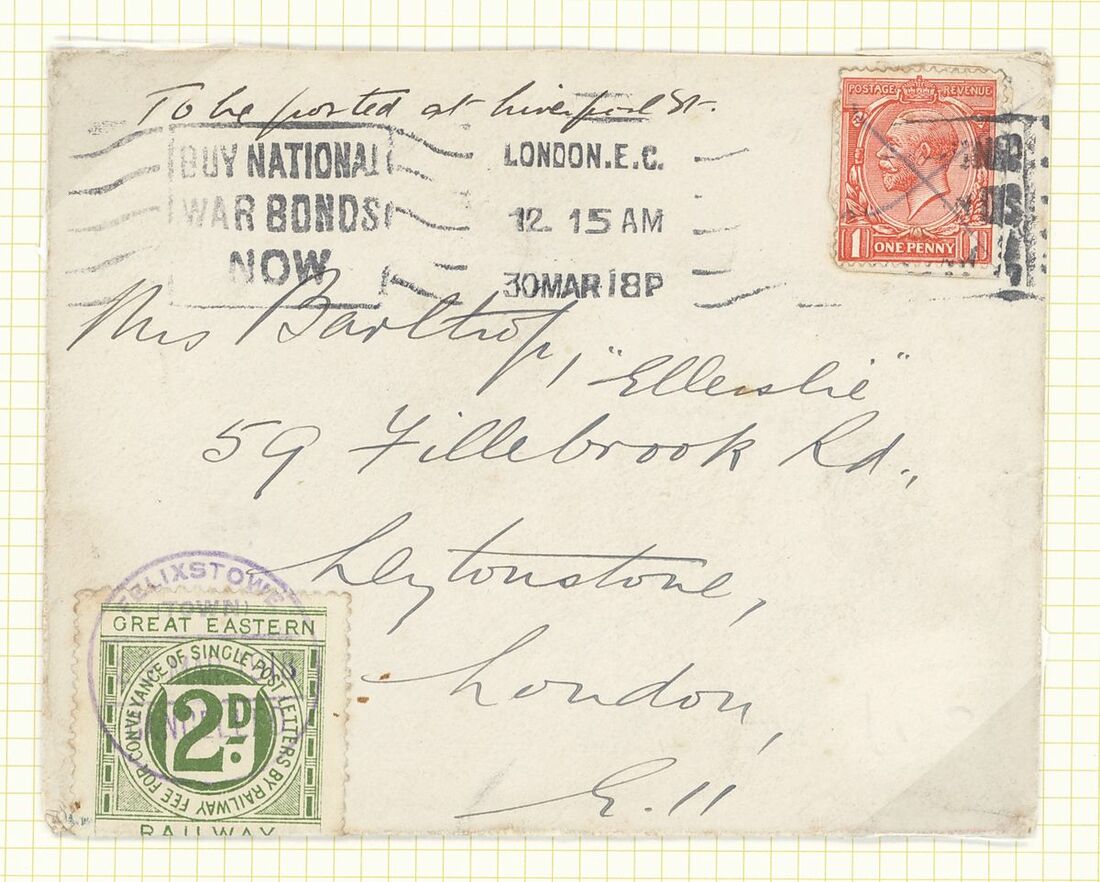 To be posted at Liverpool St.
POSTAGE REVENUE
1 ONE PENNY 1
BUY NATIONAL
WAR BONDS
NOW
LONDON.E.C.
12. 15 AM
30 MAR 18 P
Mrs Barltrop,
"Ellerslie"
59 Fillebrook Rd.,
Leytonstone,
London,
E. 11
FELIXSTOWE
(TOWN)
CANCELLED
GREAT EASTERN
FEE FOR CONVEYANCE OF SINGLE POST LETTERS BY RAILWAY
2D.
RAILWAY